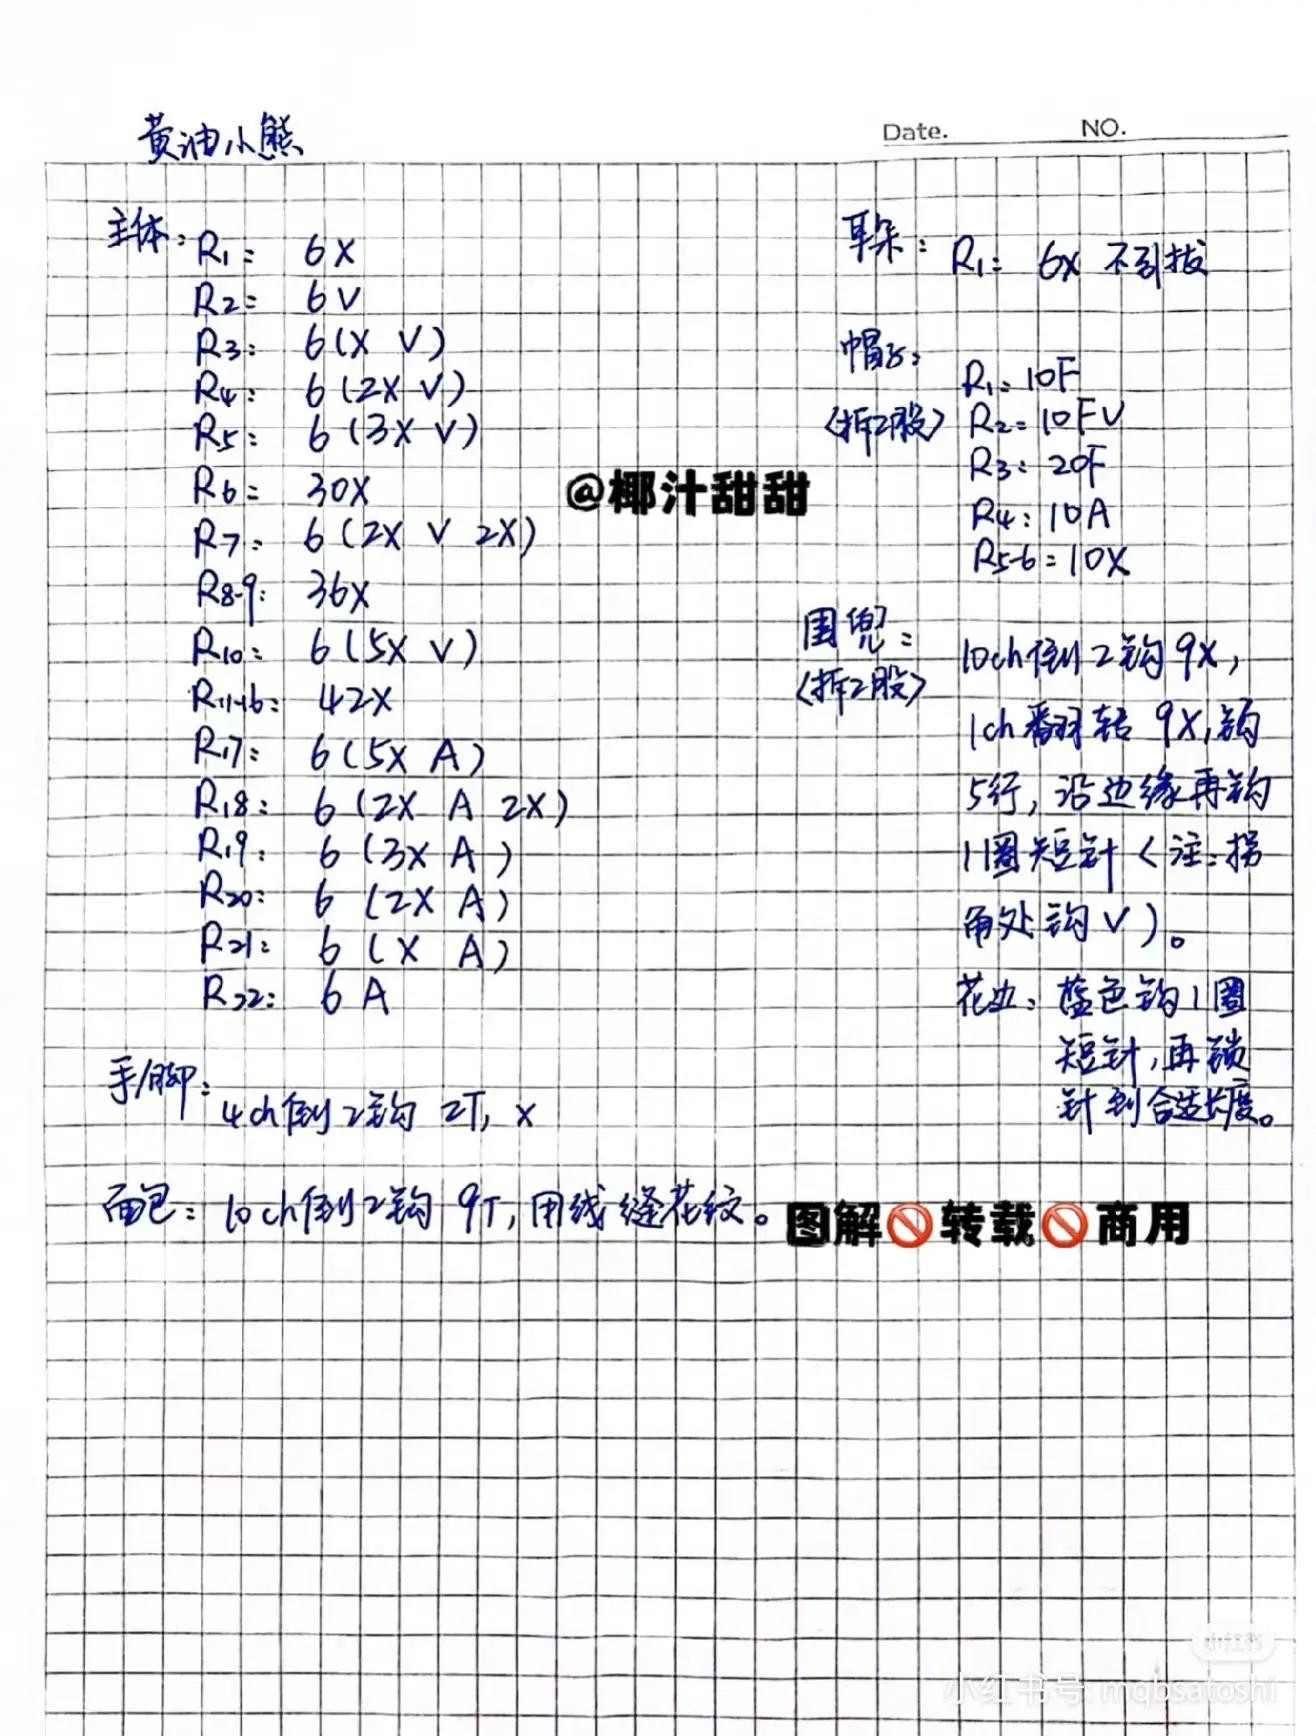 Date.
NO.
黄油小熊
主体:
R1: 6X
R2: 6V
R3: 6(X V)
R4: 6(2X V)
R5: 6(3X V)
R6: 30X
R7: 6(2X V 2X)
R8-9: 36X
R10: 6(5X V)
R11-16: 42X
R17: 6(5X A)
R18: 6(2X A 2X)
R19: 6(3X A)
R20: 6(2X A)
R21: 6(X A)
R22: 6A
手/脚:
4ch倒2钩 2T, X
面包: 10ch倒2钩 9T, 用线缝花纹。
耳朵: R1: 6X 不引拔
帽子:
<拆2股>
R1: 10F
R2: 10FV
R3: 20F
R4: 10A
R5-6: 10X
围兜:
<拆2股>
10ch倒2钩9X,
1ch翻转 9X, 钩
5行, 沿边缘再钩
1圈短针<注:拐
角处钩V)。
花边: 蓝色钩1圈
短针, 再锁
针到合适长度。
@椰汁甜甜
图解🚫转载🚫商用
小红书
小红书号: mqbsatoshi